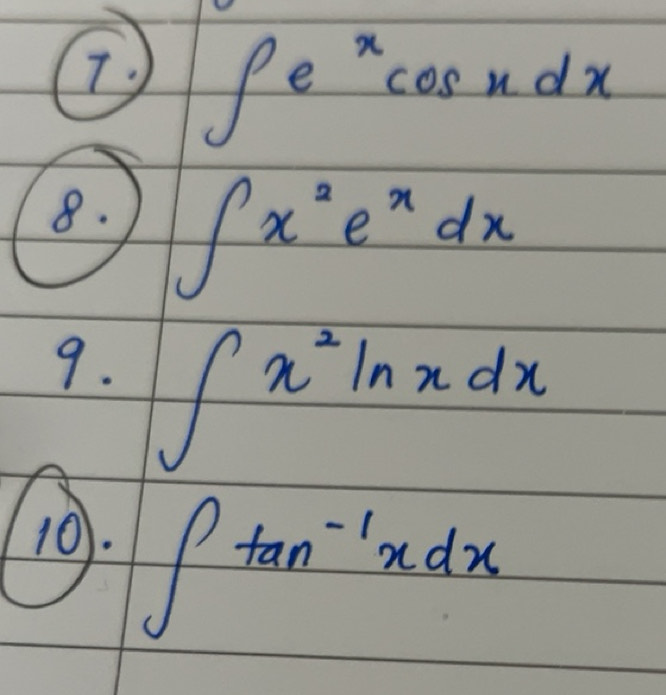 7. ∫ e^x cos x dx
8. ∫ x² e^x dx
9. ∫ x² ln x dx
10. ∫ tan⁻¹ x dx